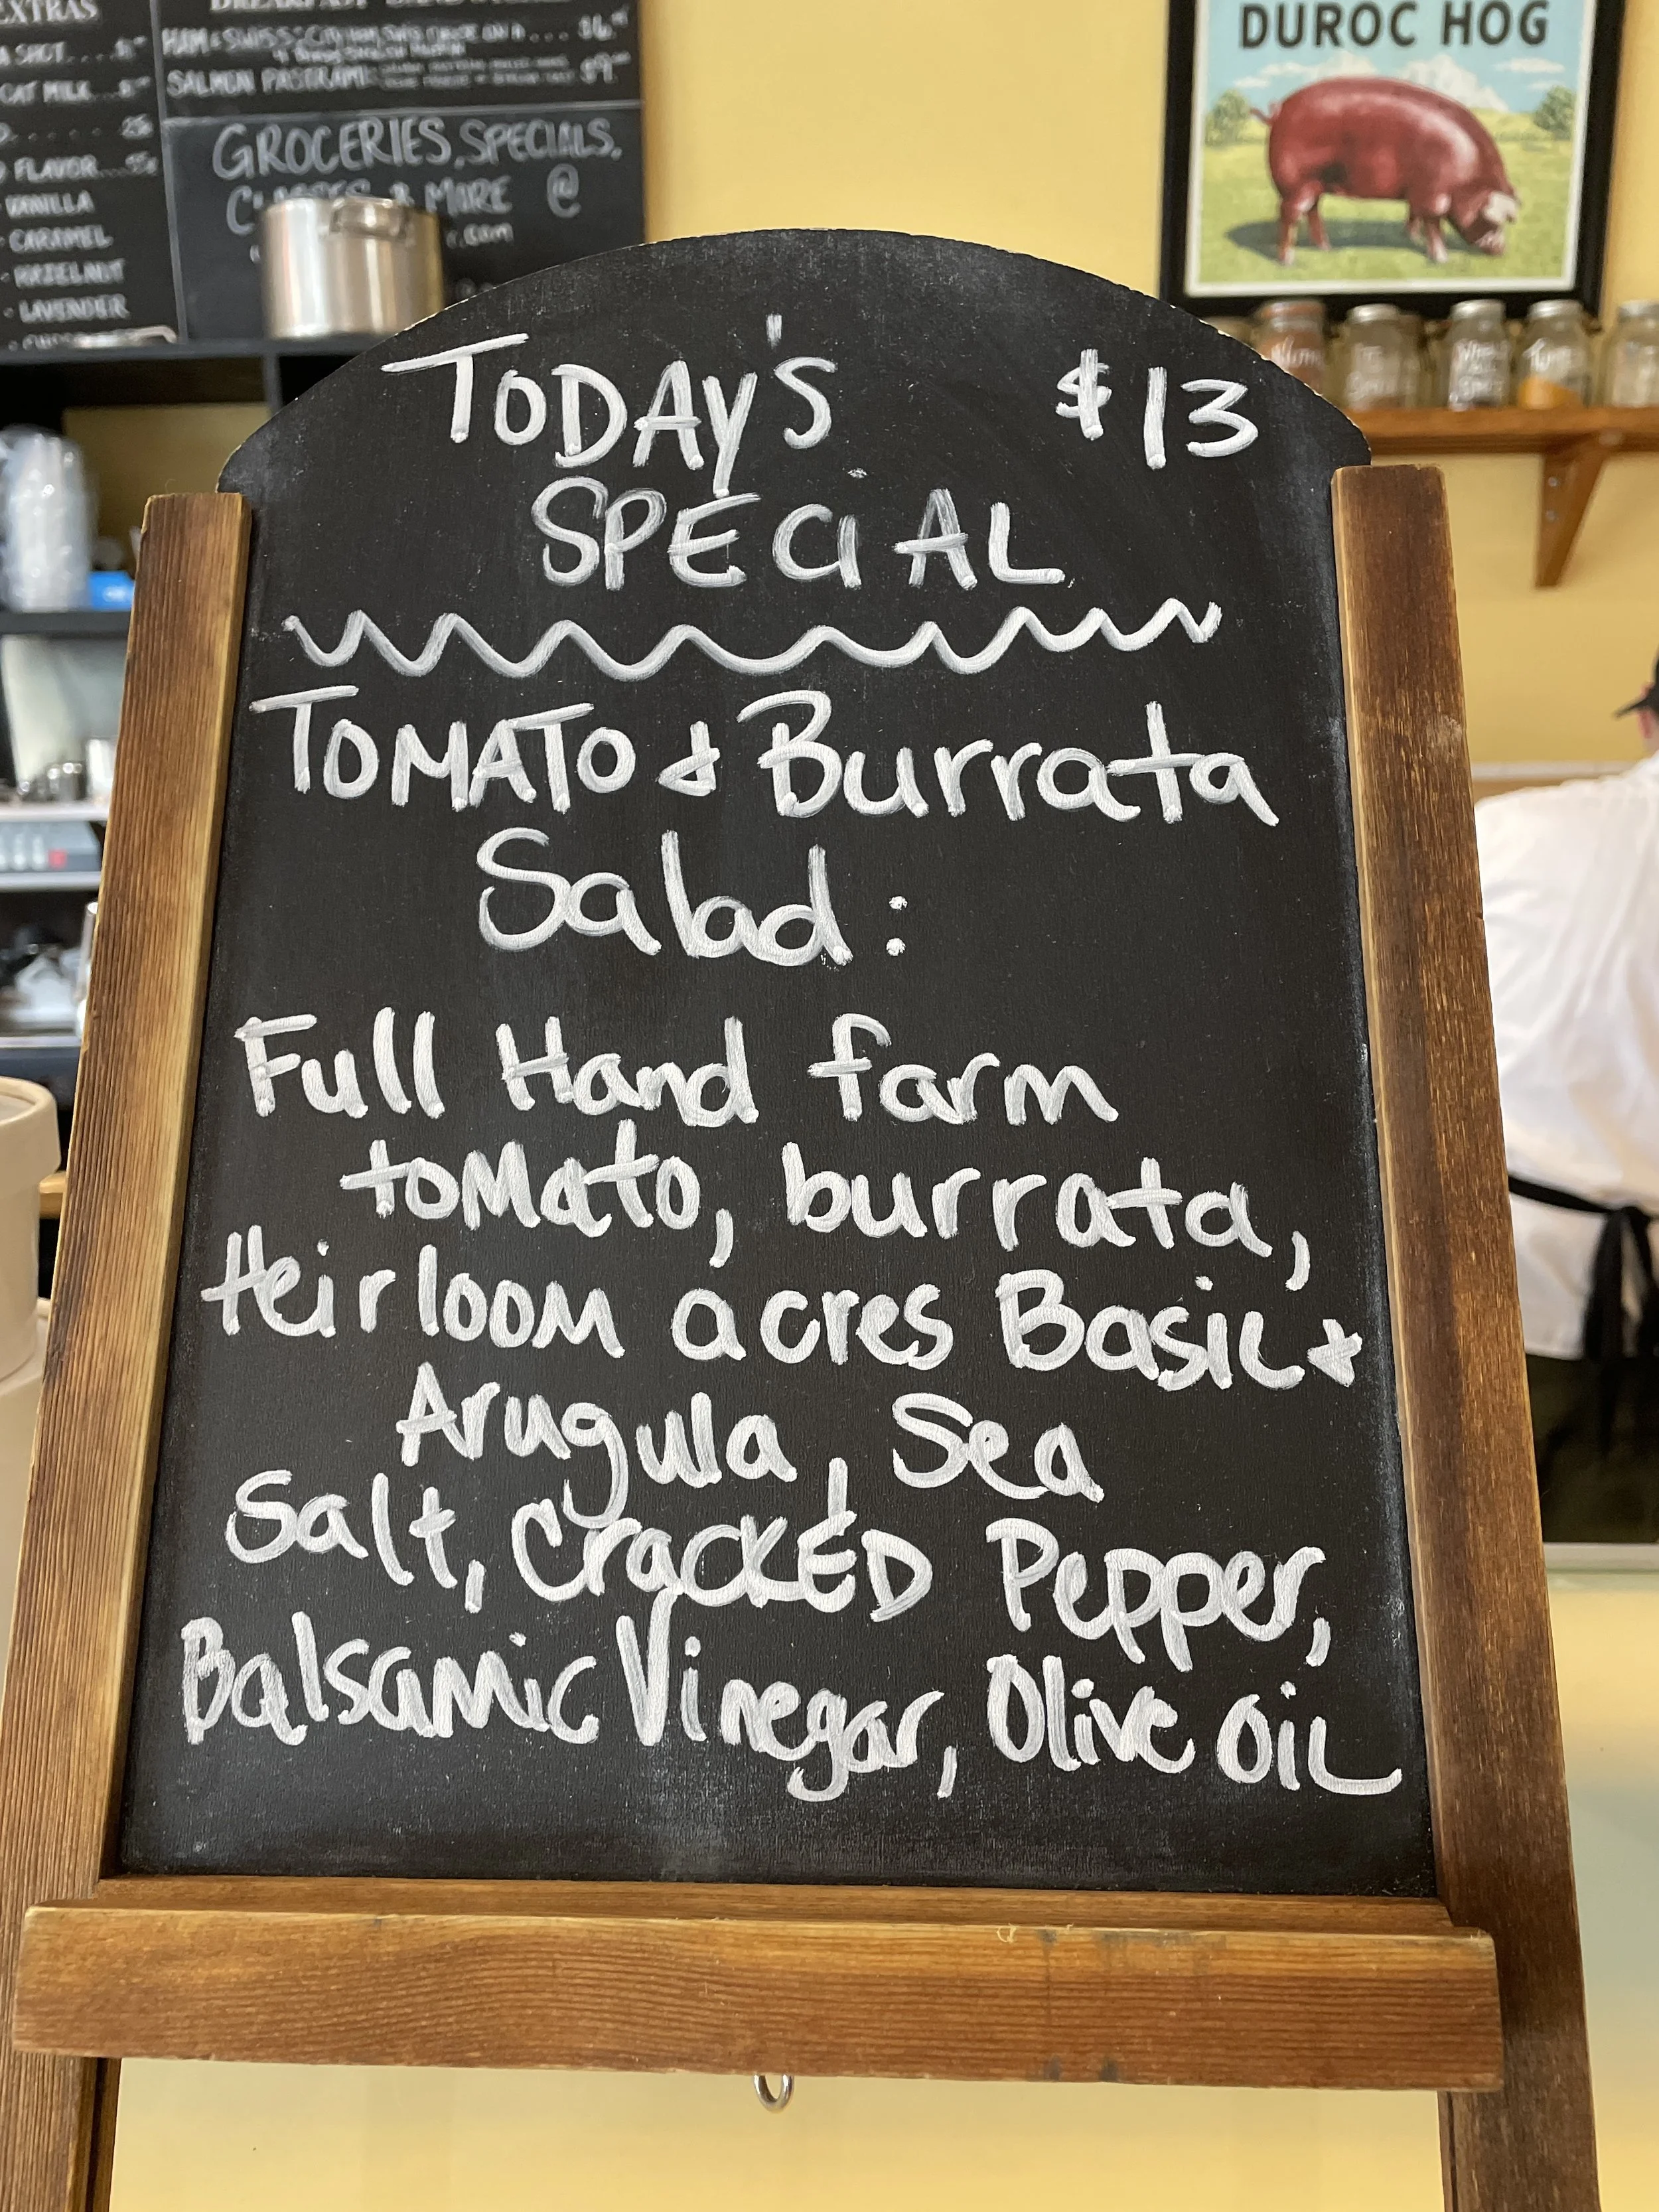 EXTRAS
A SHOT
CAT MILK
FLAVOR
VANILLA
- CARAMEL
- HAZELNUT
- LAVENDER
HAM & SWISS:
SALMON PASTRAMI:
GROCERIES, SPECIALS,
& MORE @
.com
DUROC HOG
TODAY'S $13
SPECIAL
TOMATO & Burrata
Salad:
Full Hand farm
tomato, burrata,
Heirloom acres Basil &
Arugula, Sea
Salt, CracKED Pepper,
Balsamic Vinegar, Olive oil